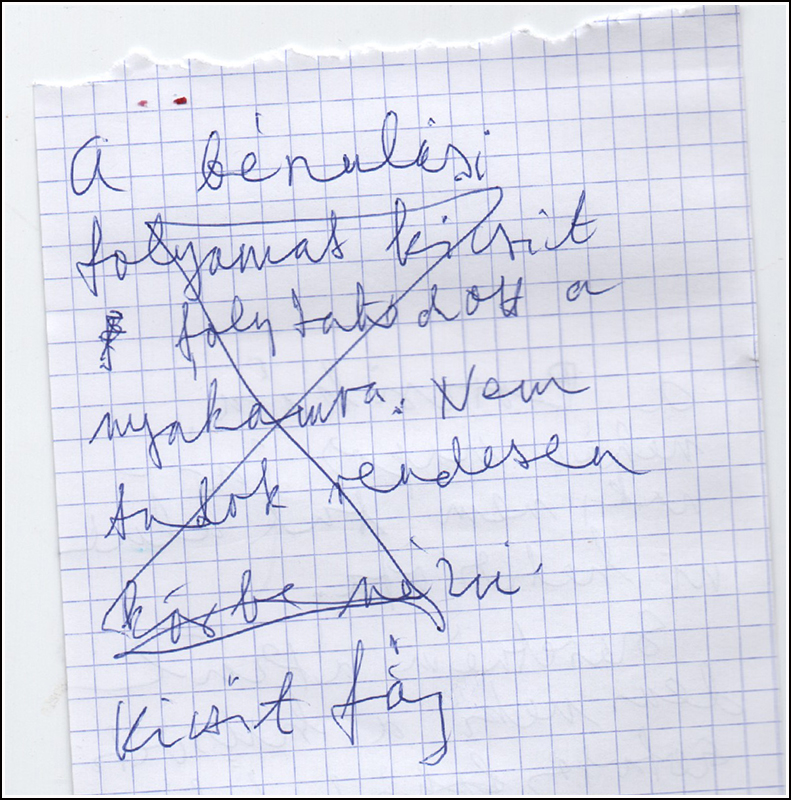 A bénulási
folyamat kicsit
folytatódott a
nyakamra. Nem
tudok rendesen
körbe nézni.
Kicsit fáj